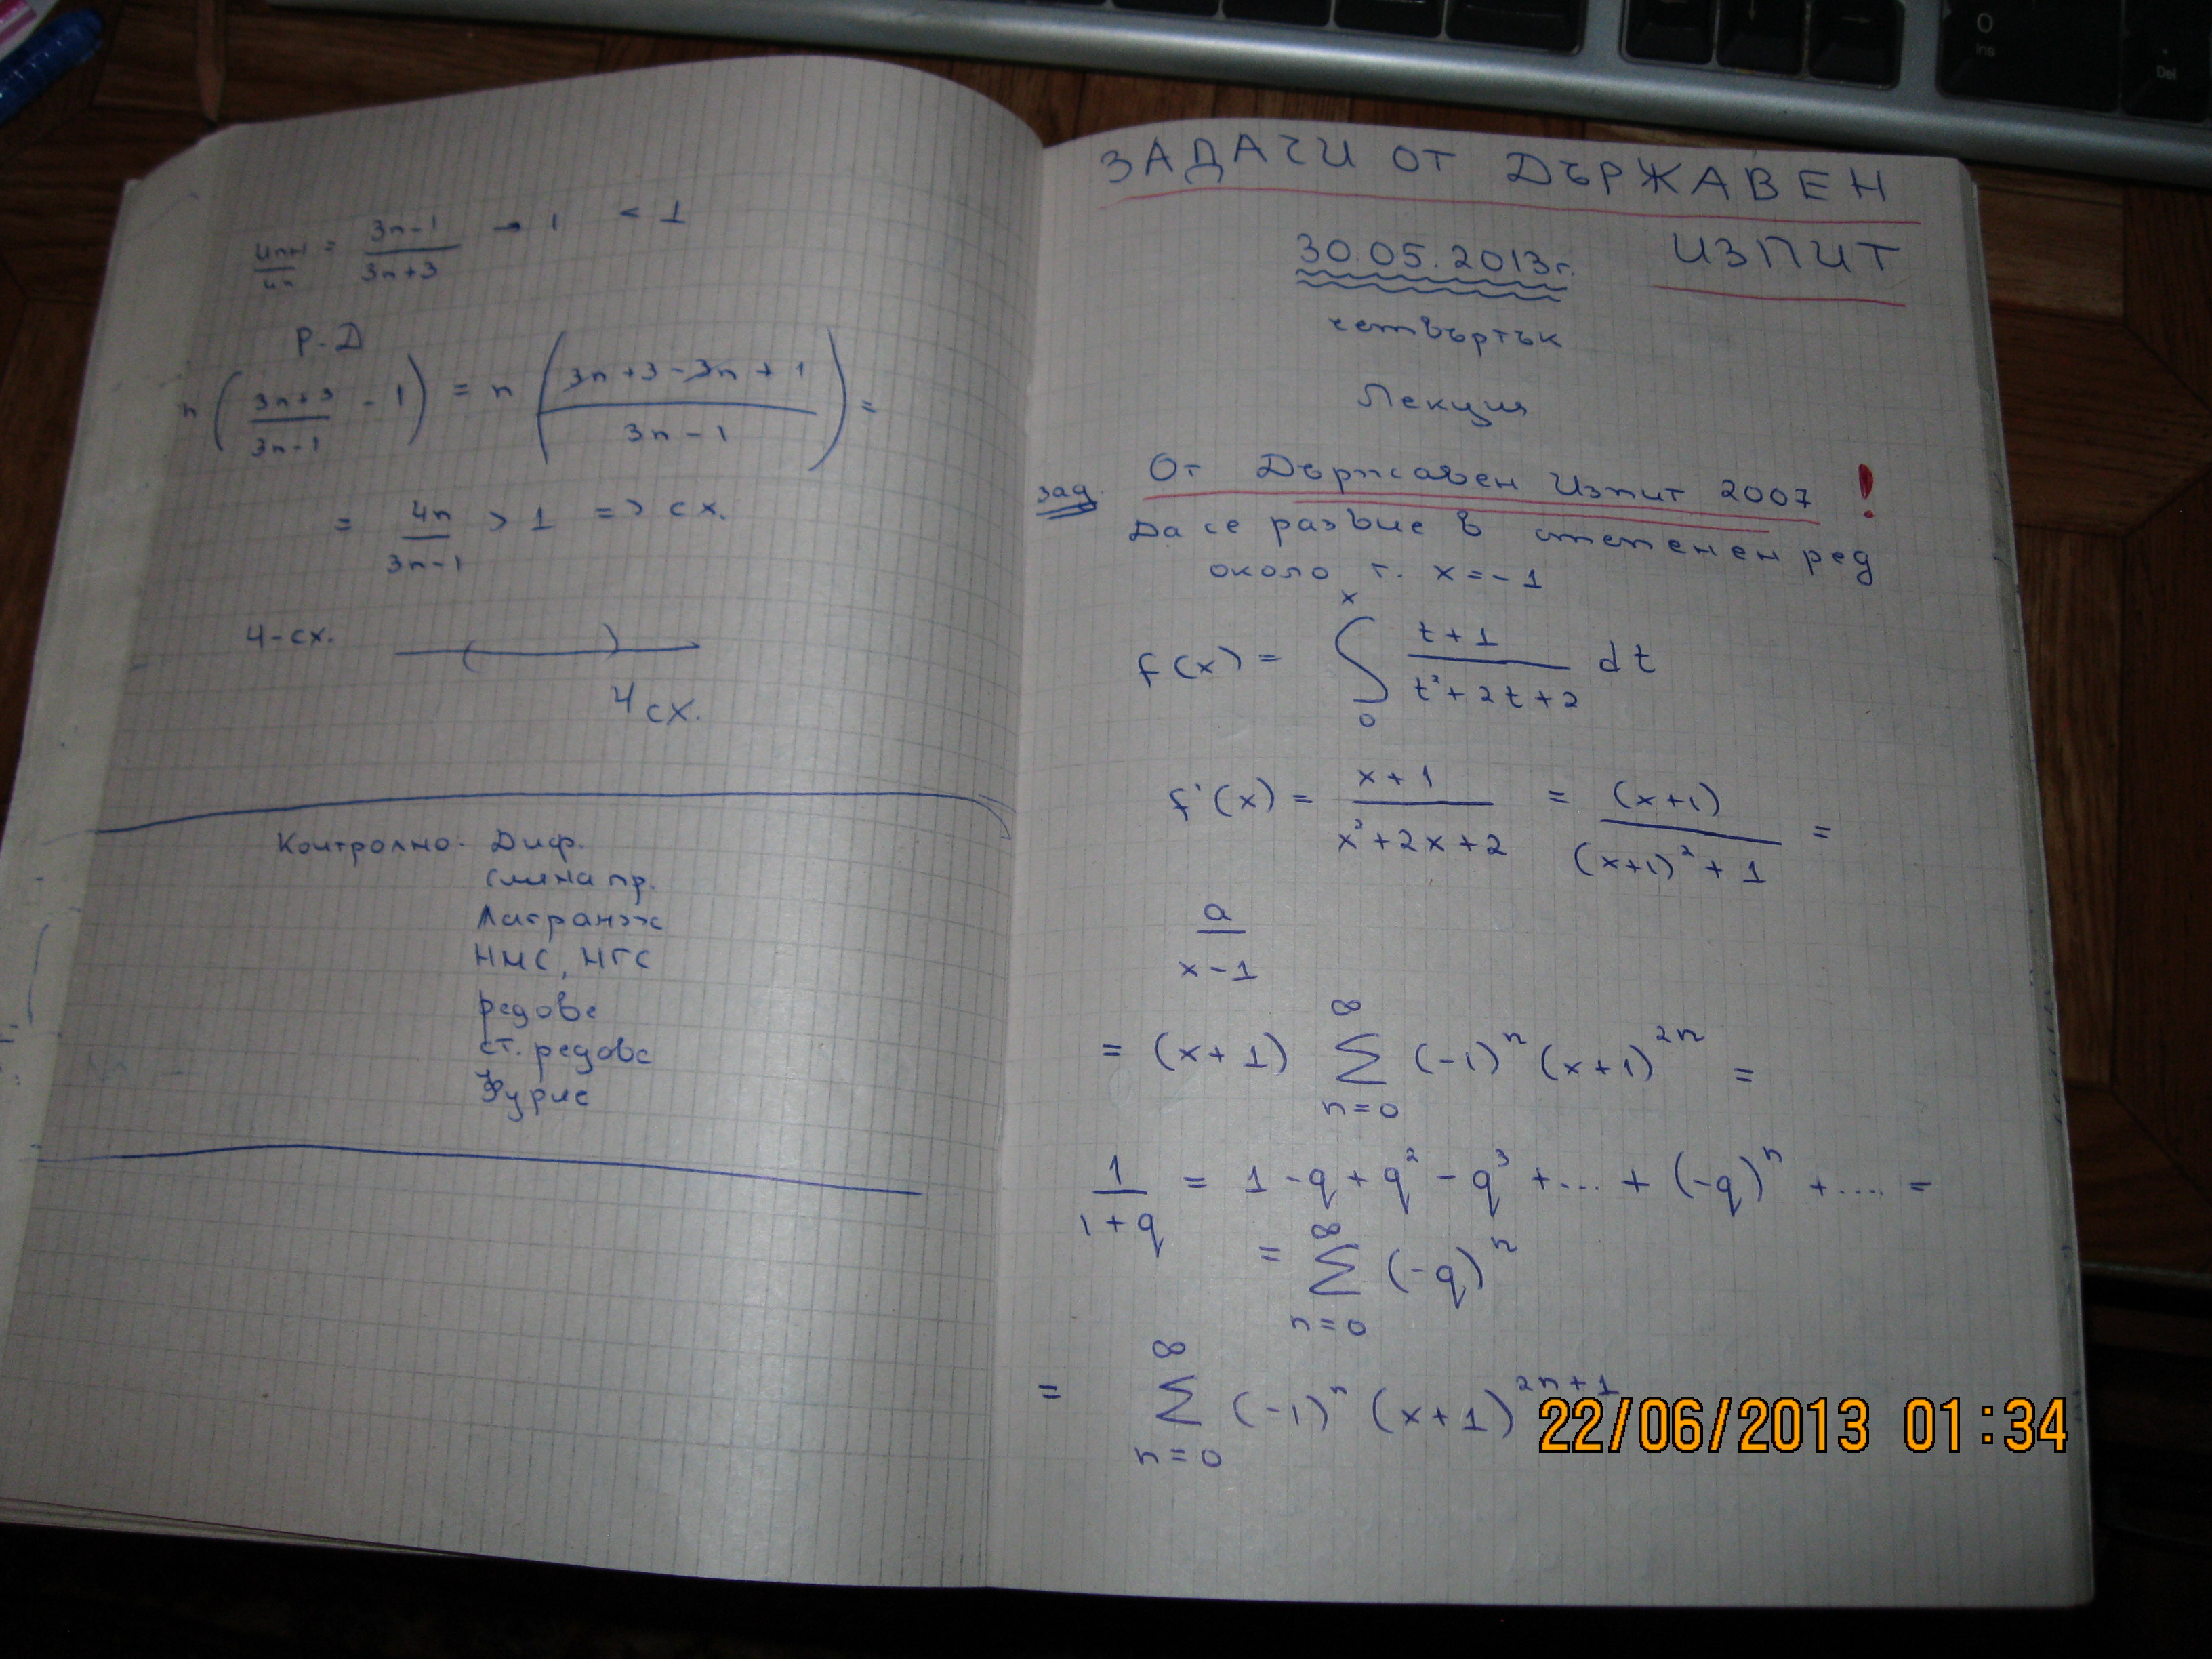 u_{n+1}/u_n = (3n-1)/(3n+3) → 1 < 1
Р.Д
n ( (3n+3)/(3n-1) - 1 ) = n ( (3n+3-3n+1)/(3n-1) ) =
= 4n/(3n-1) > 1 => сх.
4-сх.
4 сх.
Контролно: Диф.
смяна пр.
Лагранж
НМС, НГС
редове
ст. редове
Фурие
ЗАДАЧИ ОТ ДЪРЖАВЕН
ИЗПИТ
30.05.2013г.
четвъртък
Лекция
зад. От Държавен Изпит 2007 !
Да се развие в степенен ред
около т. x = -1
f(x) = ∫₀ˣ (t+1)/(t²+2t+2) dt
f'(x) = (x+1)/(x²+2x+2) = (x+1)/((x+1)²+1) =
a/(x-1)
= (x+1) ∑_{n=0}^{∞} (-1)ⁿ (x+1)²ⁿ =
1/(1+q) = 1 - q + q² - q³ + ... + (-q)ⁿ + .... =
= ∑_{n=0}^{∞} (-q)ⁿ
= ∑_{n=0}^{∞} (-1)ⁿ (x+1)²ⁿ⁺¹
22/06/2013 01:34
O
Ins
.
Del